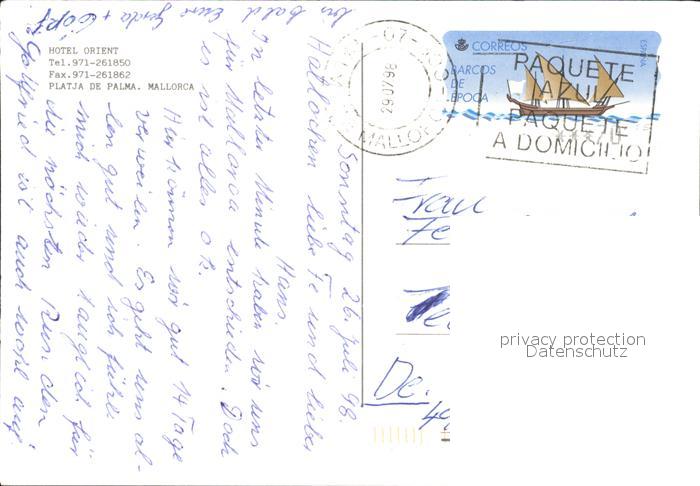 HOTEL ORIENT
Tel.971-261850
Fax.971-261862
PLATJA DE PALMA. MALLORCA
Sonntag 26. Juli 98.
Hallöchen liebe Fe und lieber
Hans.
In letzter Minute haben wir uns
für Mallorca entschieden. Doch
es ist alles o.k.
Hier können wir gut 14 Tage
verweilen. Es geht uns al-
len gut und ich fühle
mich wieder tauglich für
die nächsten Runden
Gottfried ist auch wohl auf
bis bald Eure Gerda +
CORREOS
ESPAÑA
BARCOS
DE
EPOCA
07
26 07 98
MALLORC
PAQUETE
AZUL
PAQUETE
A DOMICILIO
Frau
Fe
De.
privacy protection
Datenschutz